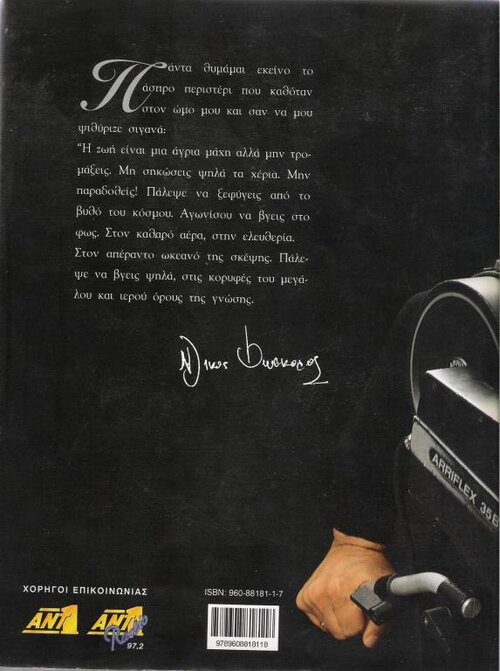 Πάντα θυμάμαι εκείνο το
άσπρο περιστέρι που καθόταν
στον ώμο μου και σαν να μου
ψιθύριζε σιγανά:
"Η ζωή είναι μια άγρια μάχη αλλά μην τρο-
μάξεις. Μη σηκώσεις ψηλά τα χέρια. Μην
παραδοθείς! Πάλεψε να ξεφύγεις από το
βυθό του κόσμου. Αγωνίσου να βγεις στο
φως. Στον καθαρό αέρα, στην ελευθερία.
Στον απέραντο ωκεανό της σκέψης. Πάλε-
ψε να βγεις ψηλά, στις κορυφές του μεγά-
λου και ιερού όρους της γνώσης.
Νίκος Φώσκολος
ARRIFLEX 35B
ΧΟΡΗΓΟΙ ΕΠΙΚΟΙΝΩΝΙΑΣ
ΑΝΤ1
ΑΝΤ1 Radio
97,2
ISBN: 960-88181-1-7
9789608818118